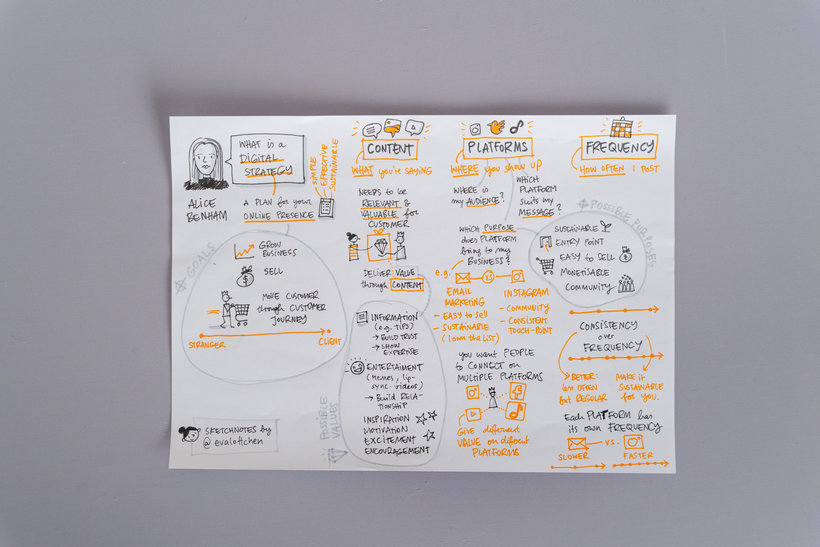 WHAT is a
DIGITAL
STRATEGY
SIMPLE
EFFECTIVE
SUSTAINABLE
ALICE
BENHAM
A PLAN for your
ONLINE PRESENCE
GOALS
GROW
BUSINESS
SELL
MOVE CUSTOMER
through CUSTOMER
JOURNEY
STRANGER
CLIENT
SKETCHNOTES by
@evalottchen
CONTENT
WHAT you're SAYING
NEEDS to be
RELEVANT &
VALUABLE for
CUSTOMER
DELIVER VALUE
through CONTENT
INFORMATION
(e.g. TIPS)
→ BUILD TRUST
→ SHOW
EXPERTISE
ENTERTAIMENT
(Memes, lip-
sync-videos)
→ Build RELA-
TIONSHIP
INSPIRATION
MOTIVATION
EXCITEMENT
ENCOURAGEMENT
POSSIBLE
VALUES
PLATFORMS
WHERE you SHOW UP
WHERE is
my AUDIENCE?
WHICH
PLATFORM
SUITS my
MESSAGE?
WHICH PURPOSE
does PLATFORM
bring to my
BUSINESS?
e.g.
VS
EMAIL
MARKETING
- EASY to SELL
- SUSTAINABLE
(I own the LIST)
INSTAGRAM
- COMMUNITY
- CONSISTENT
TOUCH-POINT
you WANT PEOPLE
to CONNECT on
MULTIPLE PLATFORMS
GIVE different
VALUE on different
PLATFORMS
FREQUENCY
HOW OFTEN I POST
POSSIBLE PURPOSES
SUSTAINABLE
ENTRY POINT
EASY to SELL
MONETISABLE
COMMUNITY
CONSISTENCY
over
FREQUENCY
BETTER:
less OFTEN
but REGULAR
MAKE it
SUSTAINABLE
for YOU.
Each PLATFORM has
its own FREQUENCY
VS.
SLOWER
FASTER